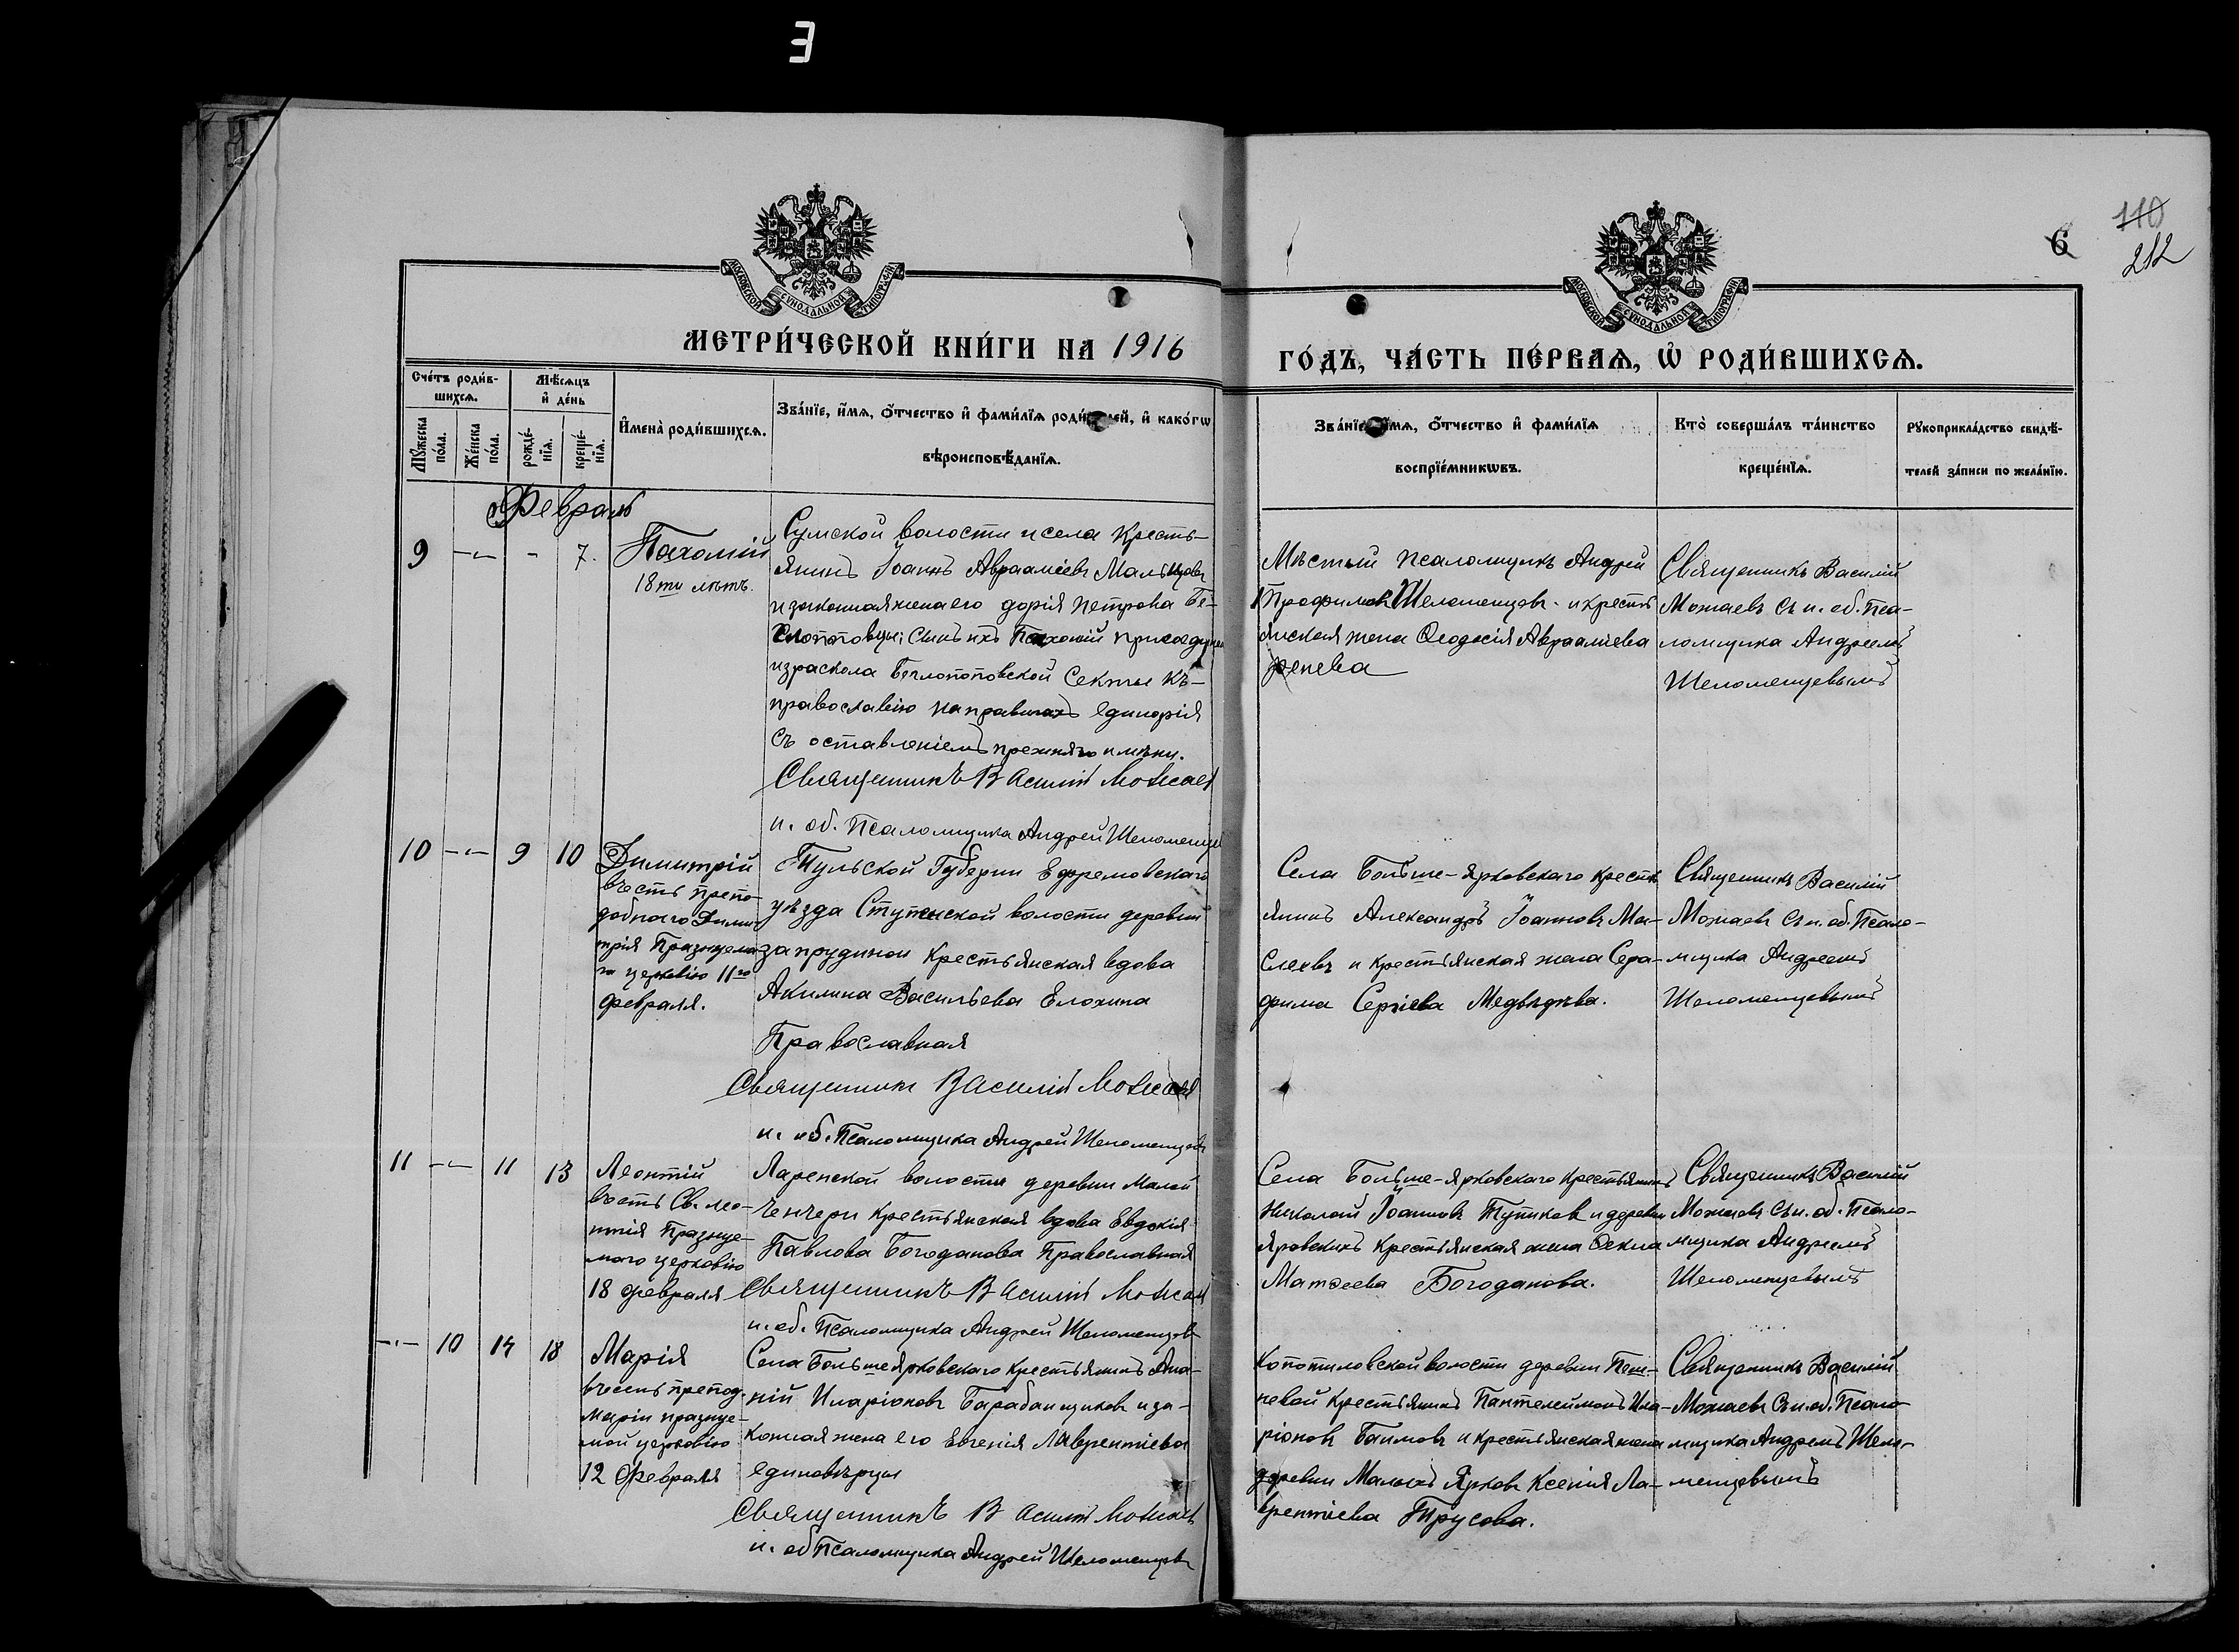 Э
110
6
212
МОСКОВСКОЙ СѴНОДАЛЬНОЙ ТИПОГРАФІИ
МОСКОВСКОЙ СѴНОДАЛЬНОЙ ТИПОГРАФІИ
МЕТРИ́ЧЕСКОЙ КНИ́ГИ НА 1916
ГО́ДЪ, ЧА́СТЬ ПЕ́РВАѦ, Ѡ҆ РОДИ́ВШИХСѦ.
Сче́тъ роди́в-
шихсѧ.
Мꙋ́жеска по́ла.
Же́нска по́ла.
Мѣ́сѧцъ
и҆ де́нь
рожде́-
нїѧ.
креще́-
нїѧ.
И҆мена̀ роди́вшихсѧ.
Зва́нїе, и҆́мѧ, ѻ҆́тчество и҆ фами́лїѧ роди́телей, и҆ како́гѡ
вѣроисповѣ́данїѧ.
Зва́нїе, и҆́мѧ, ѻ҆́тчество и҆ фами́лїѧ
воспрїе́мникѡвъ.
Кто̀ соверша́лъ та́инство
креще́нїѧ.
Рꙋкоприкла́дство свидѣ́-
телей за́писи по жела́нїю.
Февраль
9 -"- - 7.
Пахомій
18ти лѣтъ.
Сумской волости и села кресть-
янинъ Іоаннъ Авраамієвъ Мальцовъ
и законная жена его Дорія Петрова Бе-
глопоповцы; Сынъ ихъ Пахомій присоединен
изъ раскола Беглопоповской Секты къ
православію на правилахъ
съ оставленіемъ прежняго имени.
Священникъ Василій Можаевъ
и. об. Псаломщика Андрей Шеломенцев
Мѣстный псаломщикъ Андрей
Трофимовъ Шеломенцевъ и кресть
янская жена Ѳеодосія Авраамiева
Священникъ Василій
Можаевъ съ и. об. пса-
ломщика Андреемъ
Шеломенцевымъ
10 -"- 9 10
Димитрій
въ честь препо-
добнаго Дими-
трія Празднуема-
го церковію 11го
февраля.
Тульской Губерніи Ефремовскаго
уѣзда волости деревни
Запрудиной Крестьянская вдова
Акилина Васильева Елохина
Православная
Священникъ Василій Можаевъ
и. об. Псаломщика Андрей Шеломенцевъ
Села Больше-Ярковскаго крестья
янинъ Александръ Іоанновъ Ма-
слехвъ и крестьянская жена Сера-
фима Сергіева Медвѣдева.
Священникъ Василій
Можаевъ съ и. об. Псало-
мщика Андреемъ
Шеломенцевымъ
11 -"- 11 13
Леонтій
въ честь Св. Лео-
нтія Праздну-
емаго церковію
18 февраля
волости деревни Малой
Ченчери Крестьянская вдова Евдокія
Павлова Богоданова Православная
Священникъ Василій Можаевъ
и. об. Псаломщика Андрей Шеломенцевъ
Села Больше-Ярковскаго Крестьянинъ
Николай Іоанновъ Тупиковъ и деревни
Яровскихъ Крестьянская жена Ѳекла
Матѳеева Богоданова.
Священникъ Василій
Можаевъ съ и. об. Псало-
мщика Андреемъ
Шеломенцевымъ
-"- 10 14 18
Марія
въ честь препод.
Маріи праздну-
емой церковію
12 Февраля
Села Больше Ярковскаго Крестьянинъ Ана-
ній Иларіоновъ Барабанщиковъ и за-
конная жена его Евгенія Лаврентіева
единовѣрцы
Священникъ Василій Можаевъ
и. об Псаломщика Андрей Шеломенцевъ
Копотиловской волости деревни Пеш-
невой Крестьянинъ Пантелеймонъ Ила-
ріоновъ Баимовъ и крестьянская жена
деревни Малыхъ Ярковъ Ксенія Ла-
врентіева Трусова.
Священникъ Василій
Можаевъ съ и. об. Псало-
мщика Андреемъ Шело-
менцевымъ